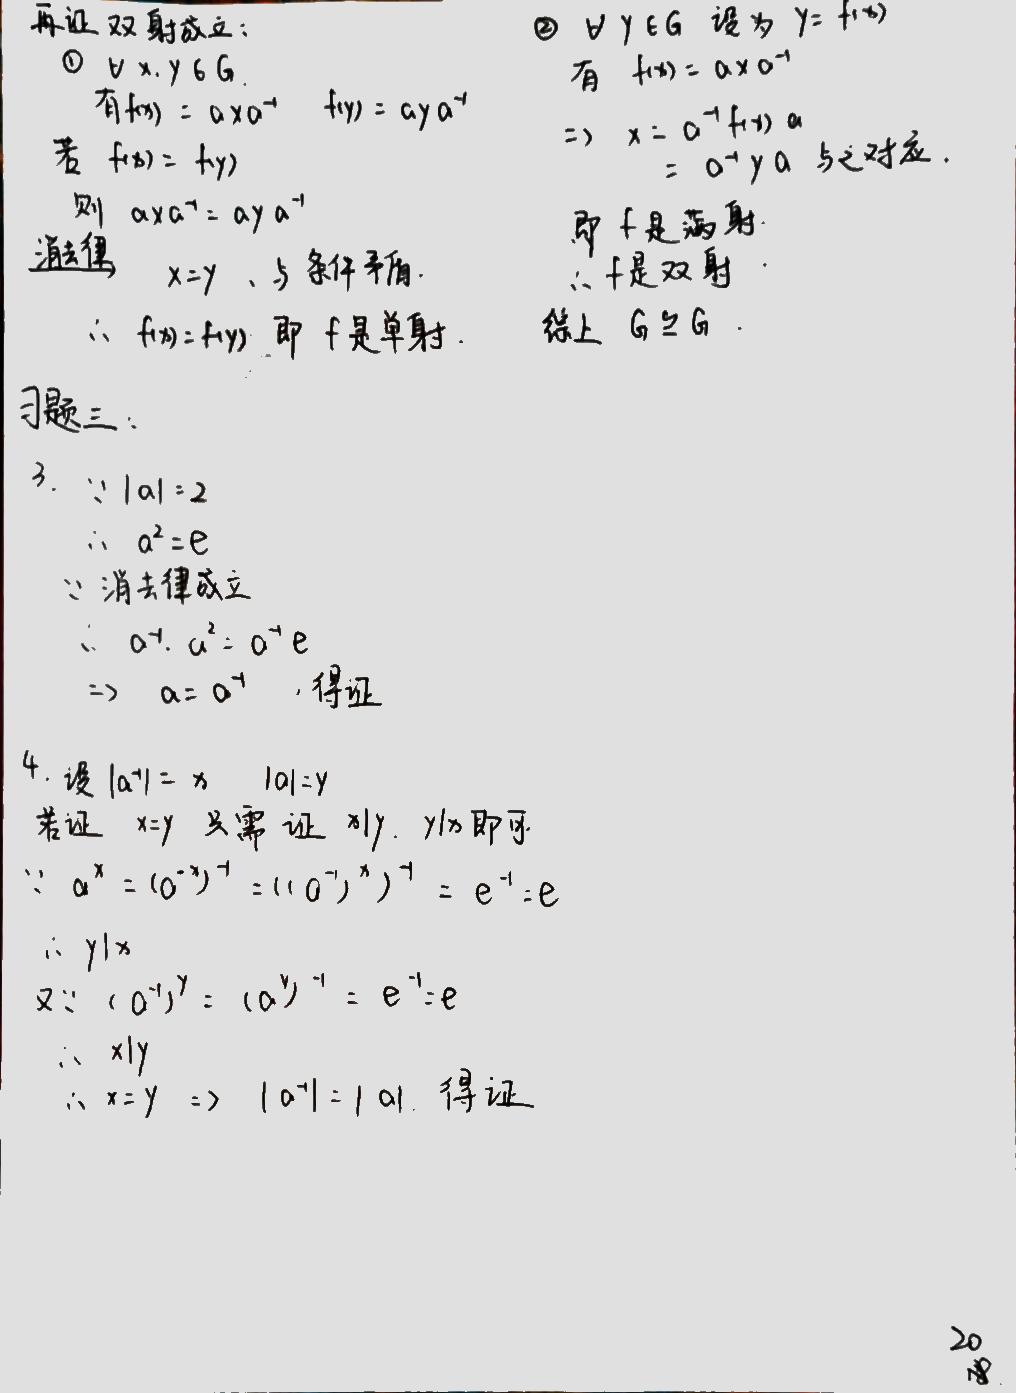 再证双射成立：
① ∀ x.y∈G.
有f(x) = axa⁻¹  f(y) = aya⁻¹
若 f(x) = f(y)
则 axa⁻¹ = aya⁻¹
消去律 x=y、与条件矛盾.
∴ f(x)=f(y) 即 f是单射.
② ∀ y∈G 设为 y= f(x)
有 f(x) = axa⁻¹
=> x = a⁻¹f(x)a
= a⁻¹ya 与之对应.
即 f是满射.
∴ f是双射.
综上 G≅G.
习题三：
3. ∵ |a|=2
∴ a²=e
∵ 消去律成立
∴ a⁻¹·a² = a⁻¹e
=> a=a⁻¹ ,得证
4. 设 |a⁻¹| = x  |a|=y
若证 x=y 只需证 x|y. y|x即可
∵ aˣ = (a⁻ˣ)⁻¹ = ((a⁻¹)ˣ)⁻¹ = e⁻¹=e
∴ y|x
又∵ (a⁻¹)ʸ = (aʸ)⁻¹ = e⁻¹=e
∴ x|y
∴ x=y => |a⁻¹|=|a|. 得证
20